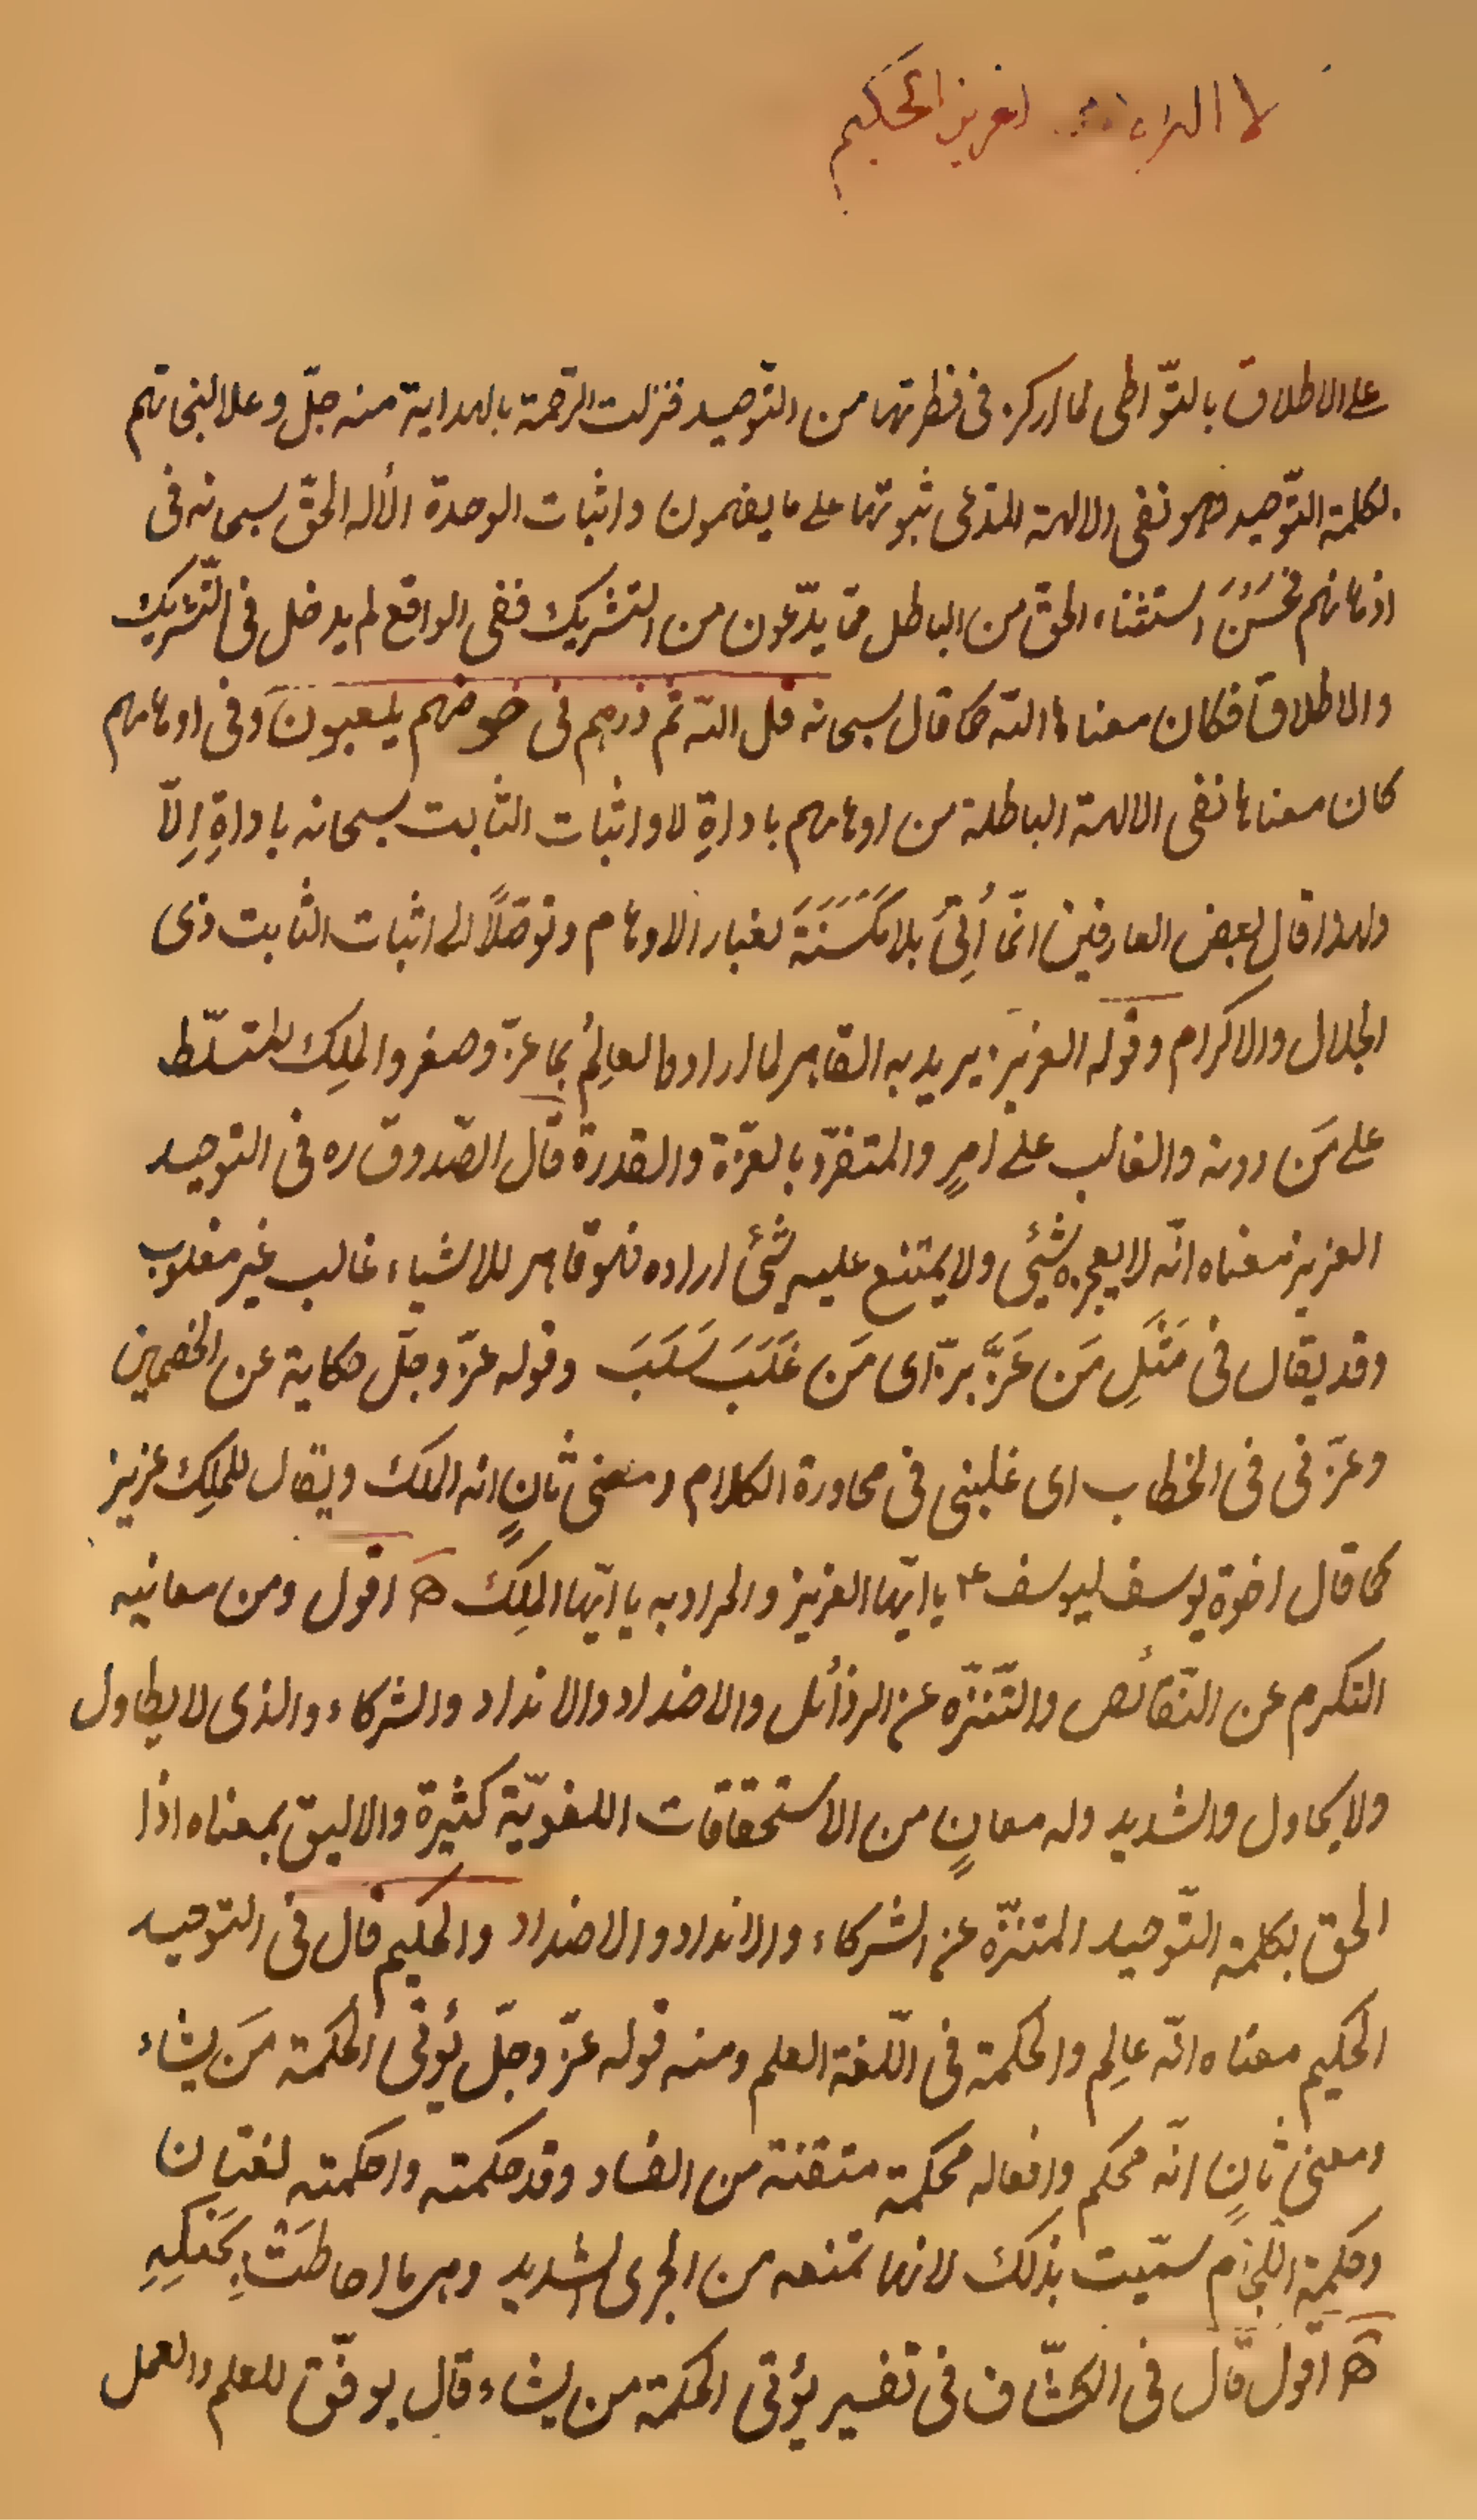 لا اله العزيز الحكيم
على الاطلاق بالتّواطى لما اركز فى فطرتها من التّوحيد فنزلت الرّحمة بالهداية منه جلّ وعلا لنجاتهم
بكلمة التّوحيد وهو نفى الالهة المدّعى ثبوتها على ما يفهمون واثبات الوحدة الأله الحقّ سبحانه فى
اذهانهم فحَسُنَ استثناء الحقّ من الباطل ممّا يدّعون من التشريك ففى الواقع لم يدخل فى التّشريك
والاطلاق فكان معناها اللّه كما قال سبحانه قل اللّه ثم ذرهم فى خوضهم يلعبون وفى اوهامهم
كان معناها نفى الالهة الباطلة من اوهامهم باداةِ لا واثبات الثّابت سبحانه باداةِ اِلّا
ولهذا قال بعض العارفين انّما أُتِىَ بلا مَكْنَسَةً لغبار الاوهام وتوصّلاً الى اثبات الثابت ذى
الجلال والاكرام وقوله العزيز يريد به القاهر لما اراد والعالِمُ بما عزّ وصغر والملِك المتسلّط
على مَن دونه والغالب على امرٍ والمتفرّد بالعزّة والقدرة قال الصّدوق ره فى التوحيد
العزيز معناه انّه لا يعجزه شىء ولا يمتنع عليه شىء اراده فهو قاهر للاشياء غالب غير مغلوب
وقد يقال فى مَثَلِ مَن عَزَّ بزّ اى مَن غَلَبَ سَلَبَ وقوله عزّ وجلّ حكاية عن الخصمين
وعزّنى فى الخطاب اى غلبنى فى محاورة الكلام ومعنى ثانٍ انه الملك ويقال للملِك عزيز
كما قال اخوة يوسف ليوسف ع يا ايّها العزيز والمراد به يا ايّها الملِك اه اقول ومن معانيه
التكرم عن النّقائص والتّنزّه عن الرذائل والاضداد والانداد والشركاء والذى لا يطاول
ولا يحاول والشديد وله معانٍ من الاستحقاقات اللغويّة كثيرة والاليق بمعناه اذا
الحق بكلمة التّوحيد المتنزّه عن الشركاء والانداد والاضداد والحكيم قال فى التوحيد
الحكيم معناه انّه عالِم والحكمة فى اللّغة العلم ومنه قوله عزّ وجلّ يُؤتى الحكمة مَن يشاء
ومعنى ثانٍ انّه محكم وافعاله محكمة متقنة من الفساد وقد حكمته واحكمته لغتان
وحكمة اللّجام سمّيت بذلك لانها تمنعه من الجرى الشديد وهى ما احاطَتْ بِحَنَكِهِ
اه اقول قال فى الكشّاف فى تفسير يؤتى الحكمة من يشاء قال يوفّق للعلم والعمل